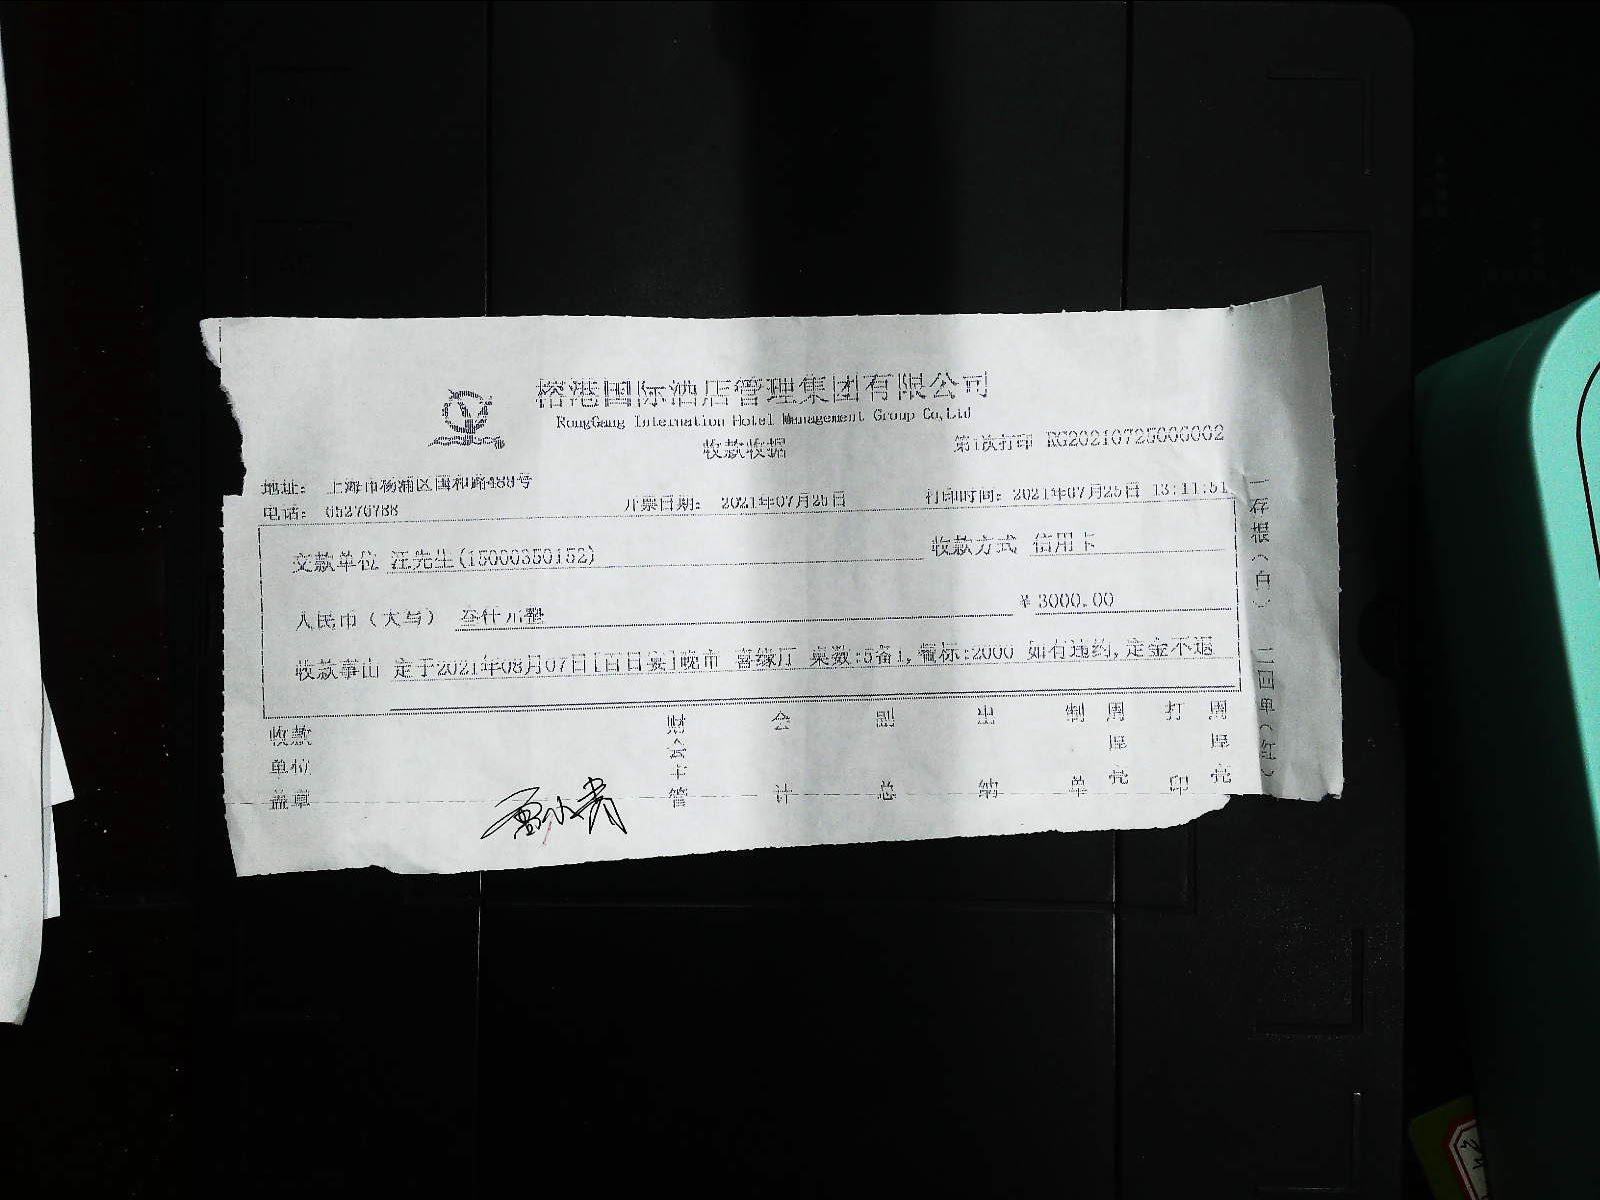 榕港国际酒店管理集团有限公司
RongGang Internation Hotel Management Group Co,Ltd
收款收据
第1次打印 RG20210725006002
地址： 上海市杨浦区国和路489号
电话： 65276788
开票日期： 2021年07月25日
打印时间：2021年07月25日 13:11:51
交款单位 汪先生(15000350152)
收款方式 信用卡
人民币（大写） 叁仟元整
￥3000.00
收款事由 定于2021年08月07日[百日宴]晚市 喜缘厅 桌数:5备1,餐标:2000 如有违约,定金不退
收款单位盖章
财会主管
会计
副总
出纳
制单 周厚亮
打印 周厚亮
一存根（白） 二回单（红）